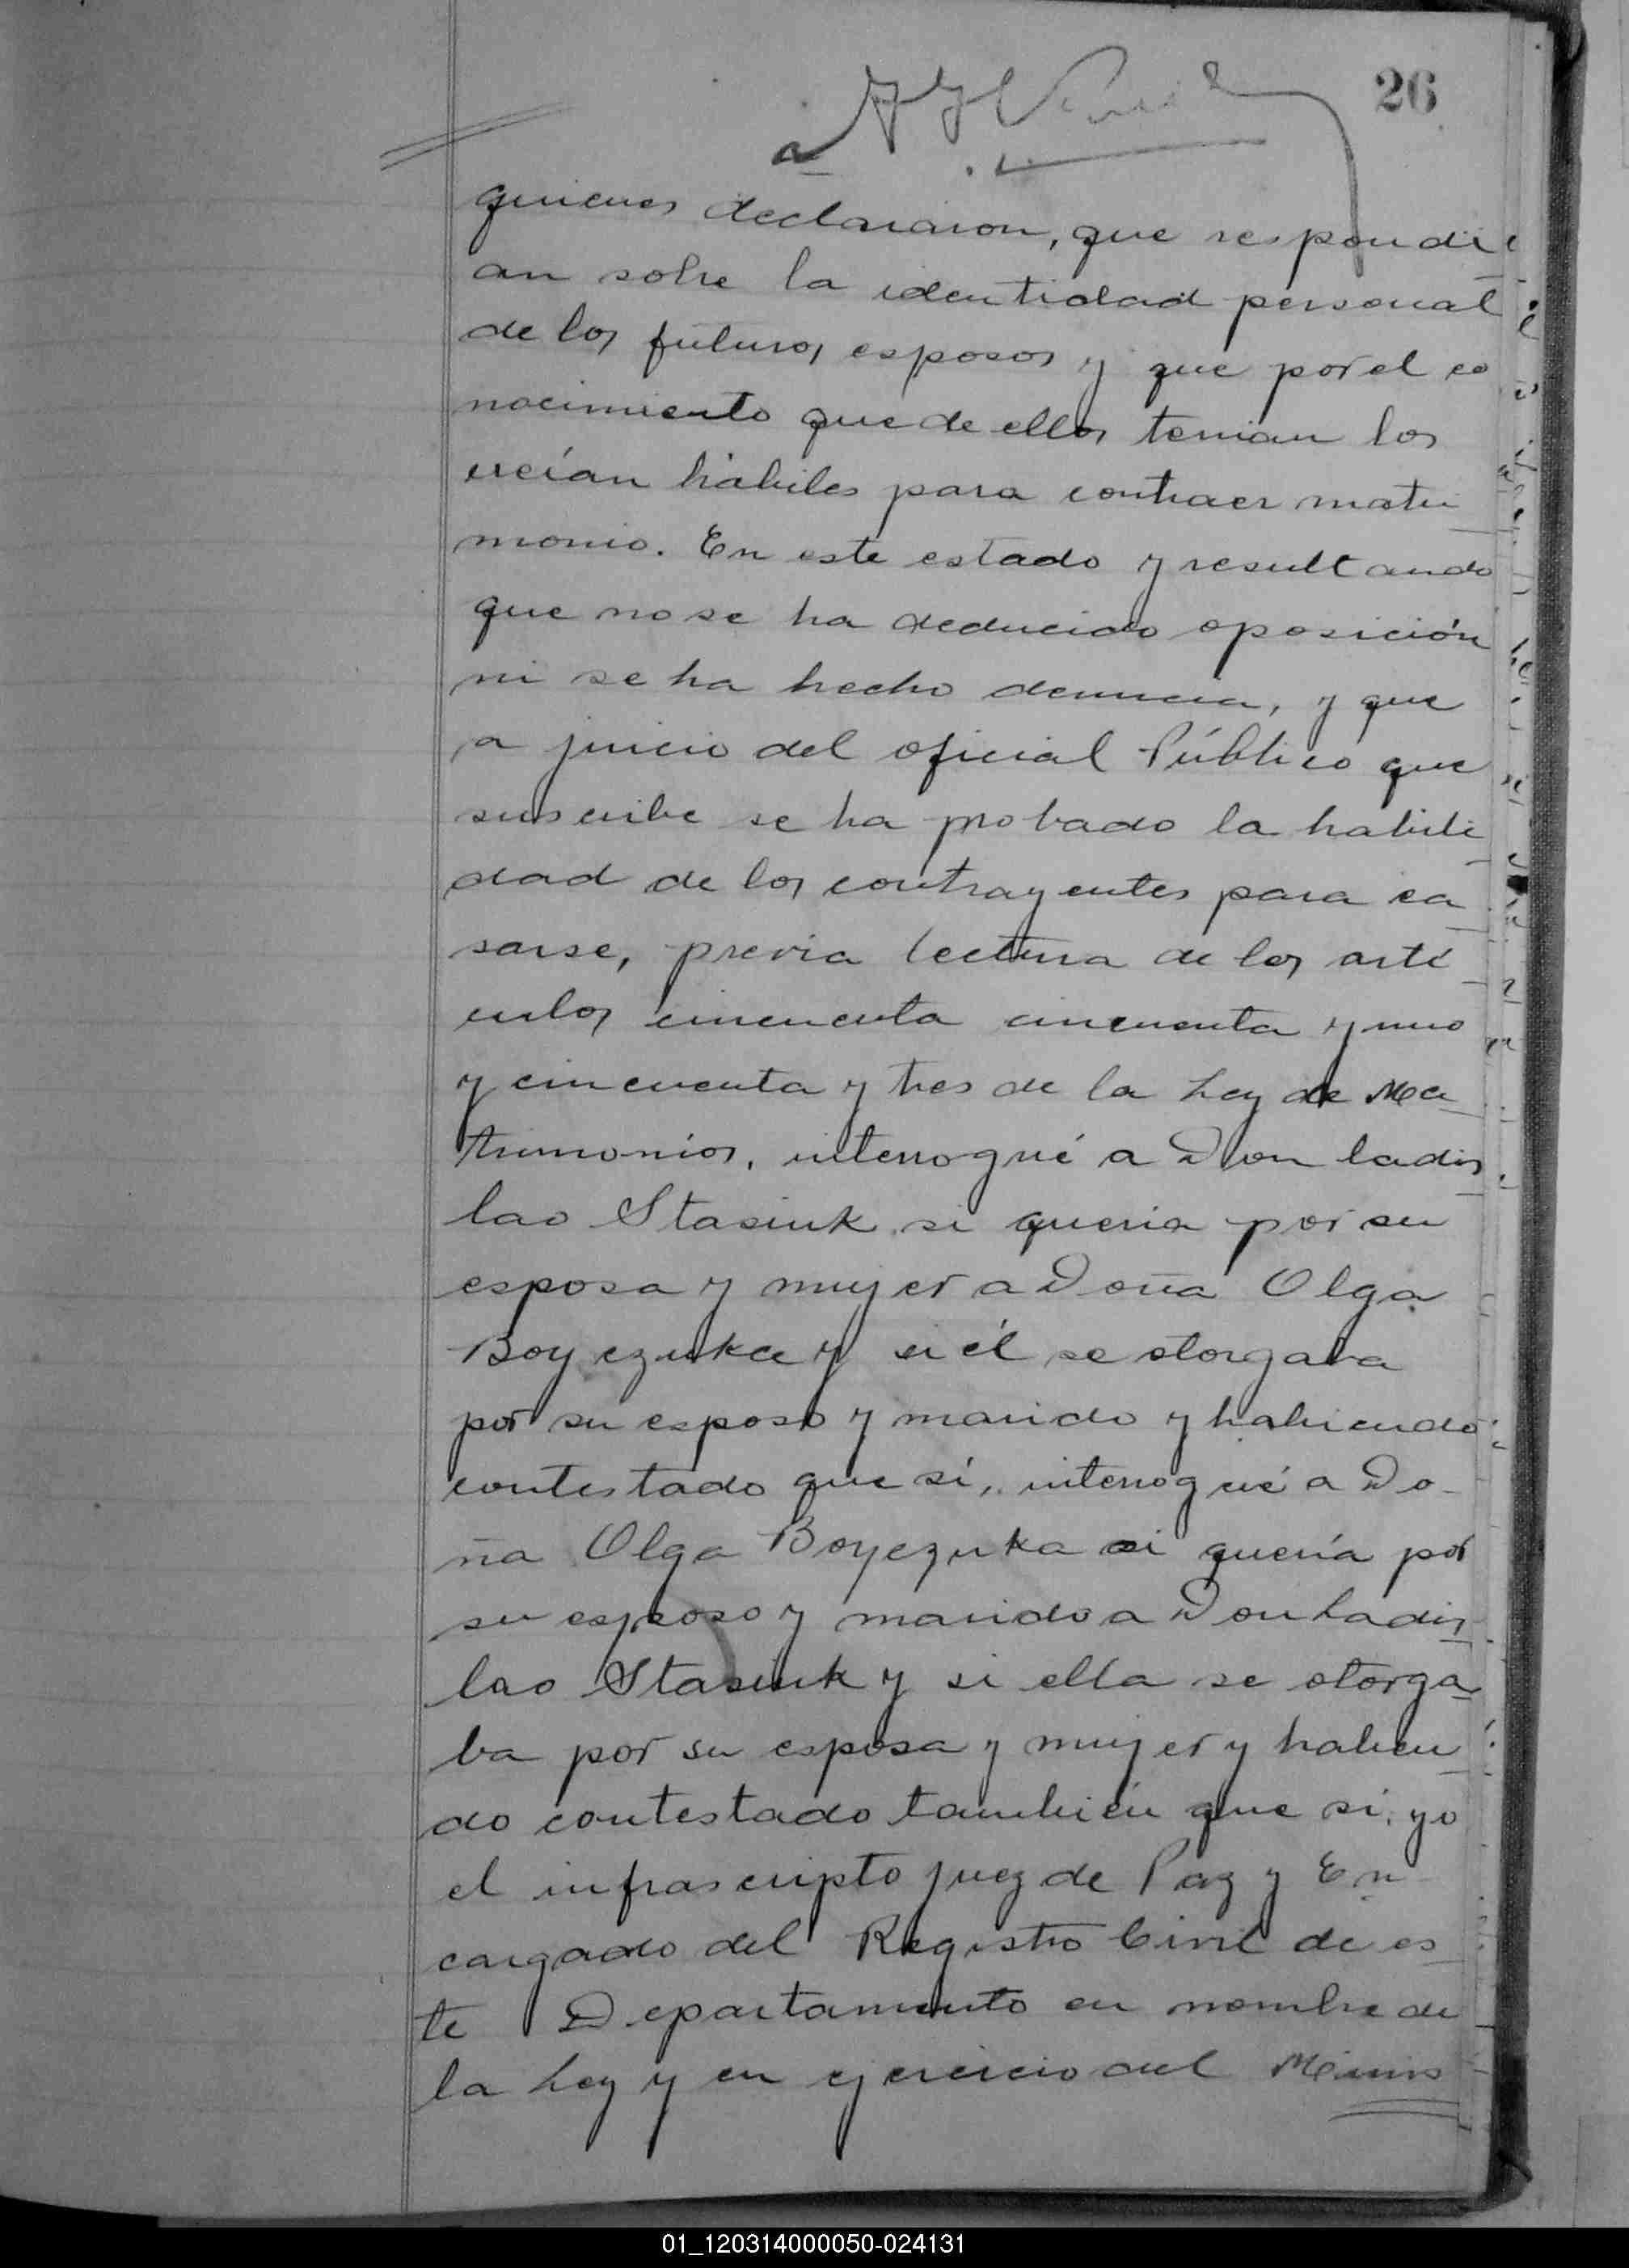 26
a
quienes declararon, que respondi
an sobre la identidad personal
de los futuros esposos y que por el co
nocimiento que de ellos tenian los
creían hábiles para contraer matri
monio. En este estado y resultando
que no se ha deducido oposición
ni se ha hecho denuncia, y que
a juicio del oficial Público que
suscribe se ha probado la habili
dad de los contrayentes para ca
sarse, previa lectura de los artí
culos cincuenta cincuenta y uno
y cincuenta y tres de la Ley de Ma
trimonios, interrogué a Don Ladis
lao Stasiuk si queria por su
esposa y mujer a Doña Olga
Boyczuka y si él se otorgaba
por su esposo y marido y habiendo
contestado que sí, interrogué a Do-
ña Olga Boyczuka si quería por
su esposo y marido a Don Ladis
lao Stasiuk y si ella se otorga
ba por su esposa y mujer y habien
do contestado también que sí, yo
el infrascripto Juez de Paz y En
cargado del Registro Civil de es
te Departamento en nombre de
la Ley y en ejercicio del Minis
01_120314000050-024131